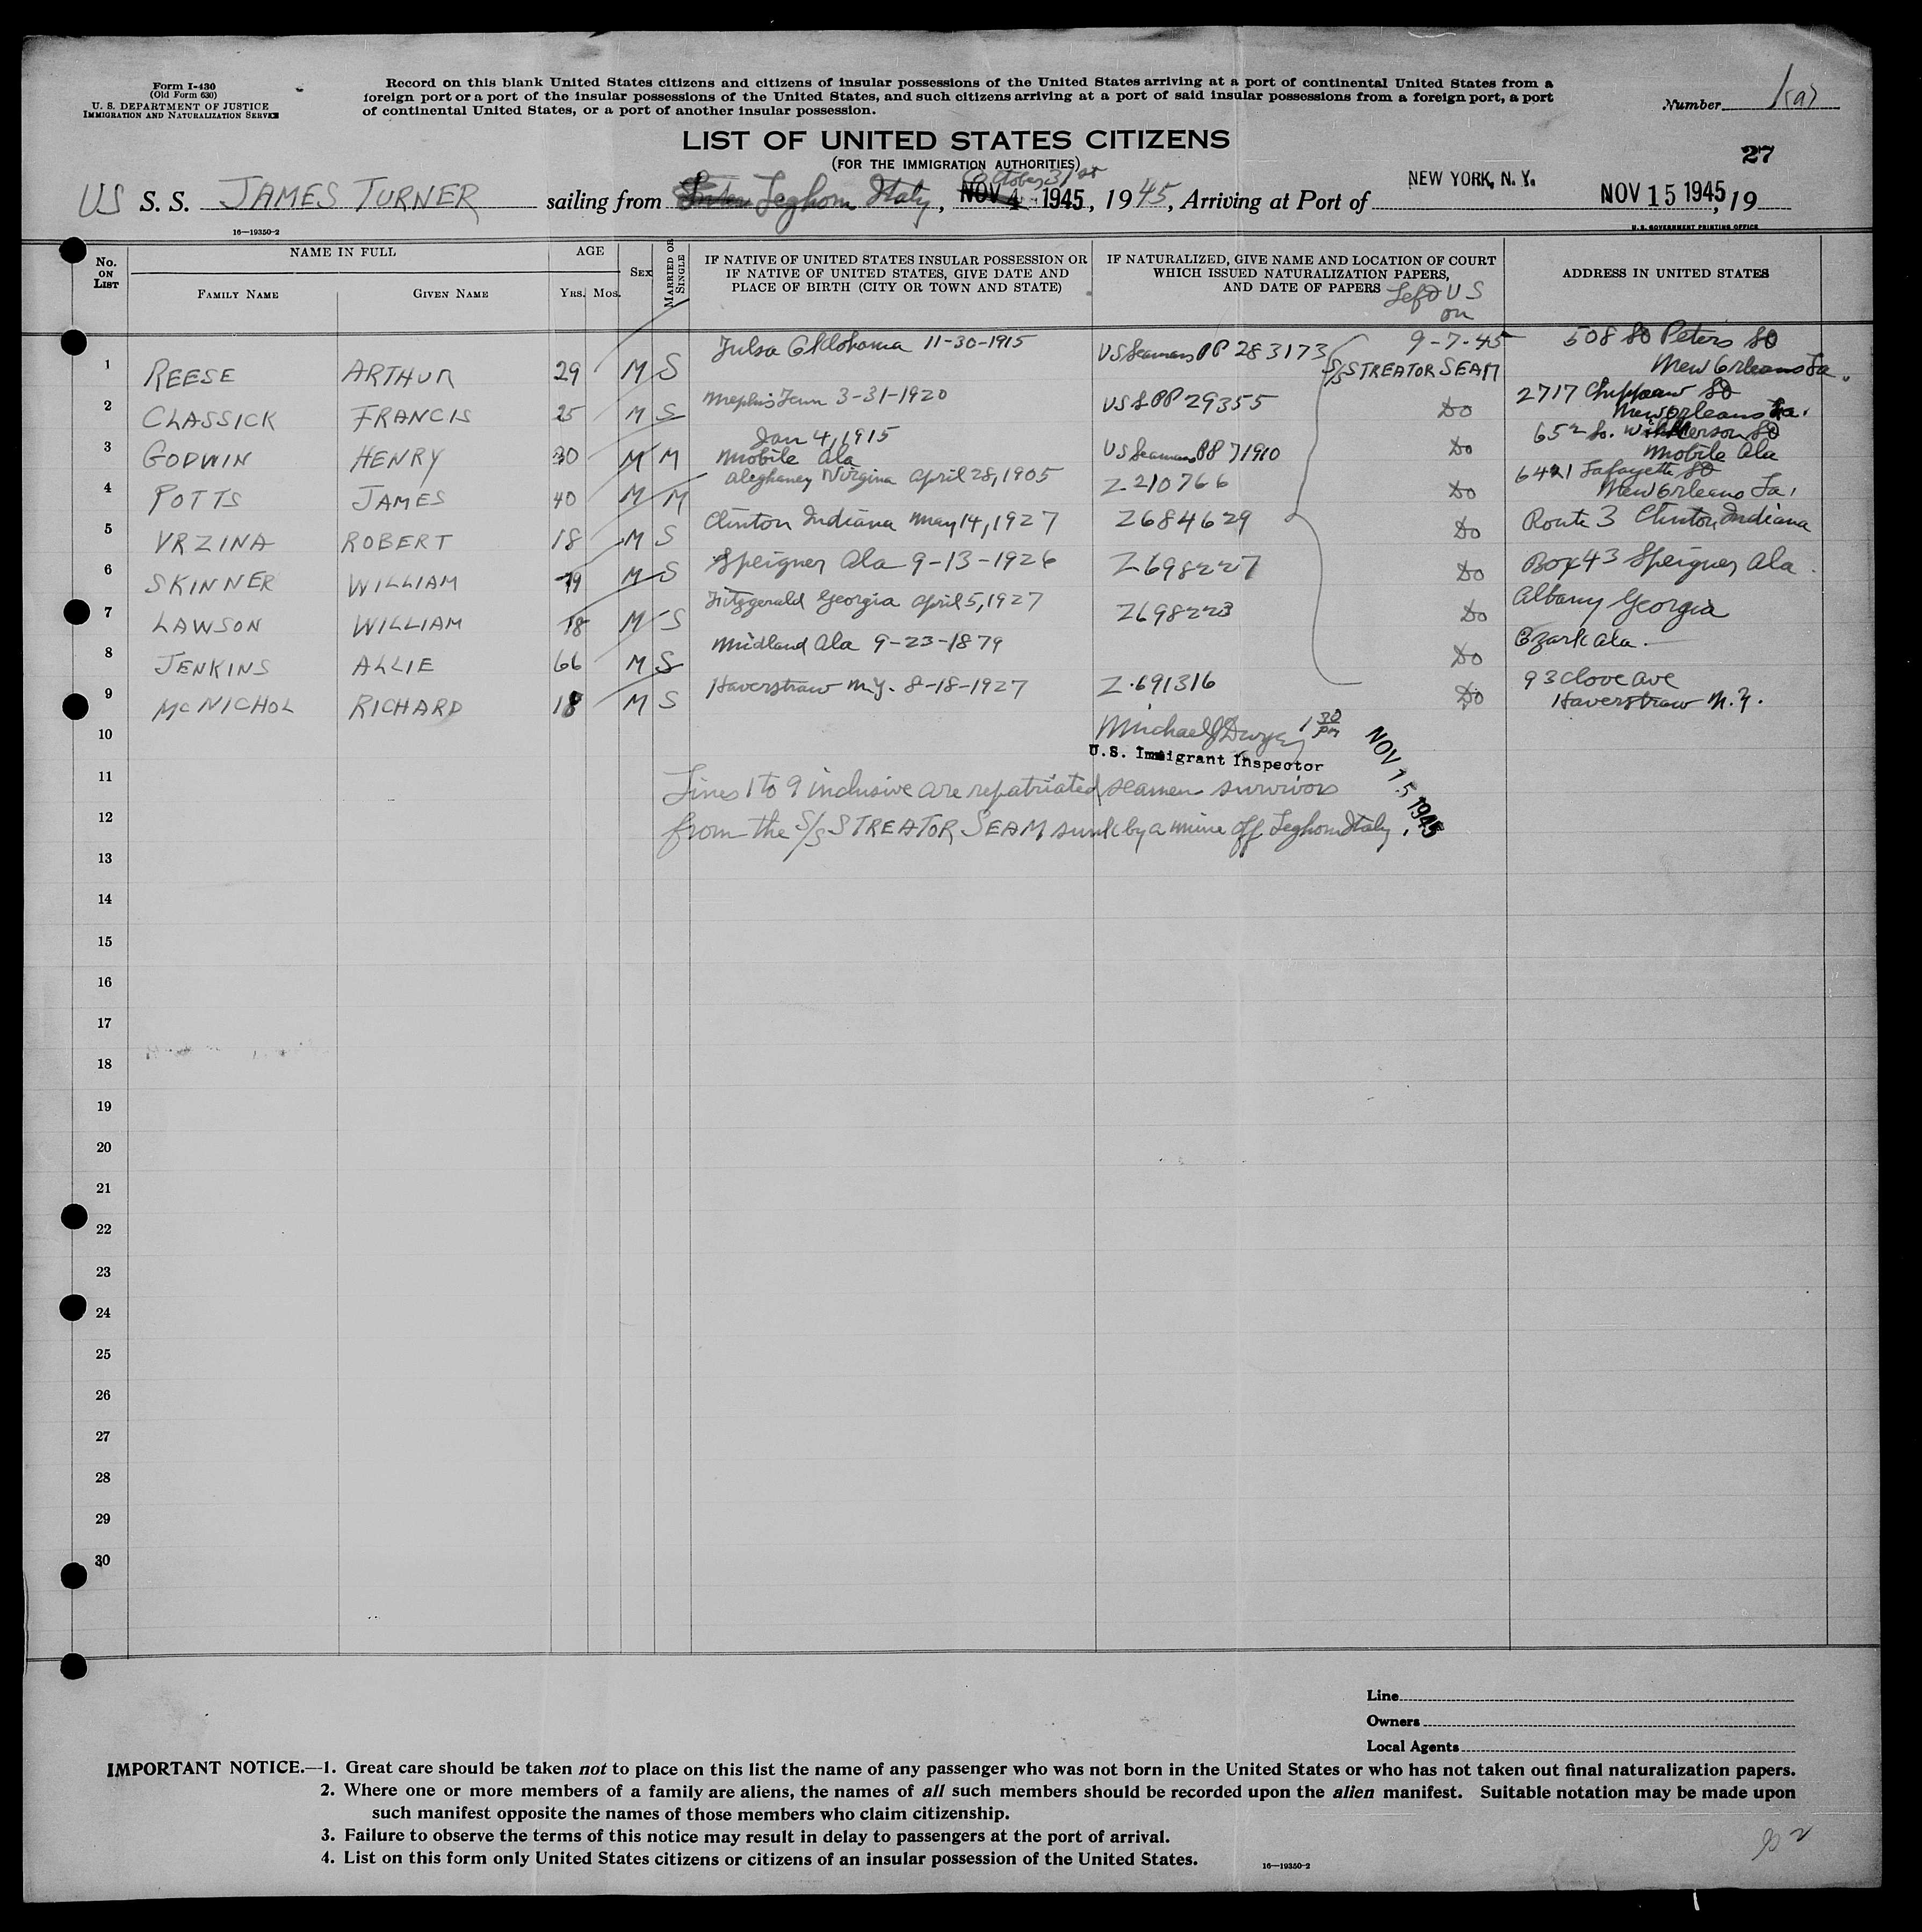 Form I-430
(Old Form 630)
U. S. DEPARTMENT OF JUSTICE
IMMIGRATION AND NATURALIZATION SERVICE
Record on this blank United States citizens and citizens of insular possessions of the United States arriving at a port of continental United States from a
foreign port or a port of the insular possessions of the United States, and such citizens arriving at a port of said insular possessions from a foreign port, a port
of continental United States, or a port of another insular possession.
Number
LIST OF UNITED STATES CITIZENS
(FOR THE IMMIGRATION AUTHORITIES)
27
October 31st
US S. S. JAMES TURNER sailing from Leghorn Italy, NOV 4 1945, 1945, Arriving at Port of NEW YORK, N. Y. NOV 15 1945, 19
16—19350-2
U. S. GOVERNMENT PRINTING OFFICE
No. ON LIST
NAME IN FULL
FAMILY NAME
GIVEN NAME
AGE
YRS. MOS.
SEX
MARRIED OR SINGLE
IF NATIVE OF UNITED STATES INSULAR POSSESSION OR
IF NATIVE OF UNITED STATES, GIVE DATE AND
PLACE OF BIRTH (CITY OR TOWN AND STATE)
IF NATURALIZED, GIVE NAME AND LOCATION OF COURT
WHICH ISSUED NATURALIZATION PAPERS,
AND DATE OF PAPERS
Left US
on
ADDRESS IN UNITED STATES
1 REESE ARTHUR 29 M S Tulsa Oklohoma 11-30-1915 US Seamans PP 283173 9-7-45 S/S STREATOR SEAM 508 So Peters St New Orleans La.
2 CLASSICK FRANCIS 25 M S Mephis Tenn 3-31-1920 US S PP 29355 Do 2717 Chippeaw St New Orleans La.
3 GODWIN HENRY 30 M M Jan 4, 1915 Mobile Ala US Seamans PP 71910 Do 652 So. Wilkerson St Mobile Ala
4 POTTS JAMES 40 M M Aleghaney Virgina April 28, 1905 Z 210766 Do 6421 Lafayette St New Orleans La.
5 VRZINA ROBERT 18 M S Clinton Indiana May 14, 1927 Z684629 Do Route 3 Clinton, Indiana
6 SKINNER WILLIAM 19 M S Speigner Ala 9-13-1926 Z698227 Do Box 43 Speigner Ala.
7 LAWSON WILLIAM 18 M S Fitzgerald Georgia April 5, 1927 Z698223 Do Albany Georgia
8 JENKINS ALLIE 66 M S Midland Ala 9-23-1879 Do Ozark Ala.
9 McNICHOL RICHARD 18 M S Haverstraw N.Y. 8-18-1927 Z.691316 Do 93 Clove Ave Haverstraw N.Y.
10 Michael J Dwyer 1 30 pm
U.S. Immigrant Inspector
NOV 15 1945
11 Lines 1 to 9 inclusive are repatriated seamen survivors
12 from the S/S STREATOR SEAM sunk by a mine off Leghorn Italy.
13
14
15
16
17
18
19
20
21
22
23
24
25
26
27
28
29
30
Line
Owners
Local Agents
IMPORTANT NOTICE.—1. Great care should be taken not to place on this list the name of any passenger who was not born in the United States or who has not taken out final naturalization papers.
2. Where one or more members of a family are aliens, the names of all such members should be recorded upon the alien manifest. Suitable notation may be made upon
such manifest opposite the names of those members who claim citizenship.
3. Failure to observe the terms of this notice may result in delay to passengers at the port of arrival.
4. List on this form only United States citizens or citizens of an insular possession of the United States.
16—19350-2